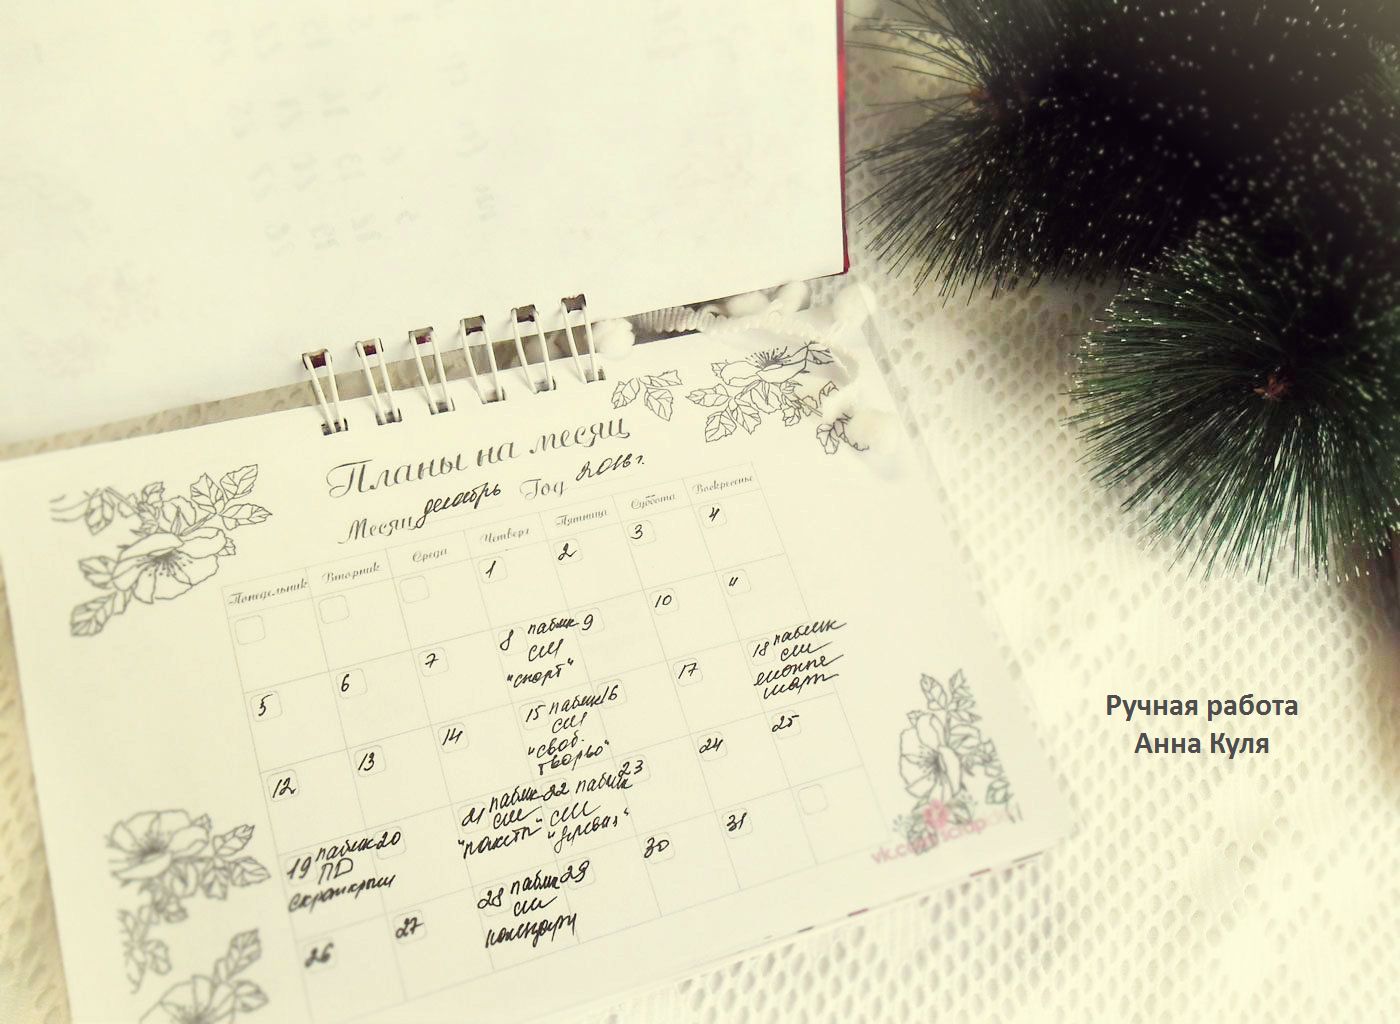 Планы на месяц
Месяц декабрь Год 2016 г.
Понедельник Вторник Среда Четверг Пятница Суббота Воскресенье
1 2 3 4
5 6 7 8 паблик СМ "спорт" 9 10 11
12 13 14 15 паблик СМ "своб. творью" 16 17 18 паблик СМ
19 паблик ПД скрапкрыш 20 21 паблик СМ "пакеты" 22 паблик СМ 23 24 25
26 27 28 паблик СМ календари 29 30 31
Ручная работа
Анна Куля